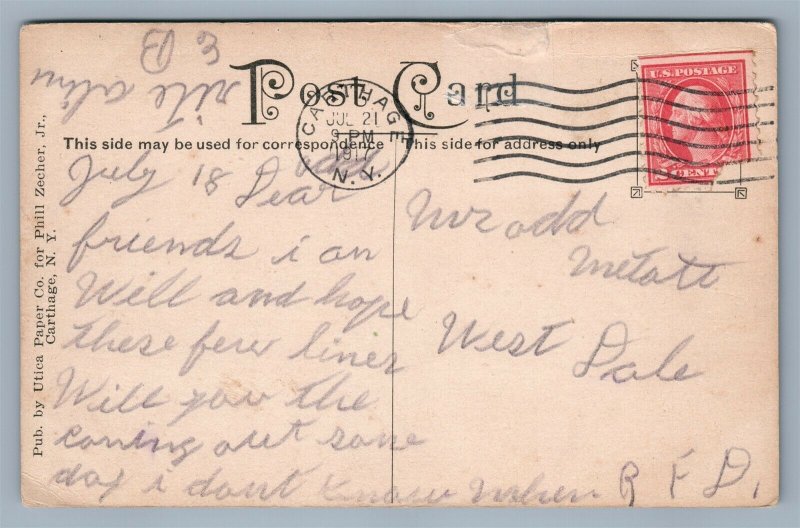 Post Card
This side may be used for correspondence
This side for address only
CARTHAGE
JUL 21
9 PM
1917
N. Y.
U.S. POSTAGE
CENT
Pub. by Utica Paper Co. for Phill Zecher, Jr.,
Carthage, N. Y.
July 18 Dear odd
friends i an
Will and hope
these few lines
Will you the
coming out some
day i dont know when
rite
E B
Mr odd
West Dale
R F D.